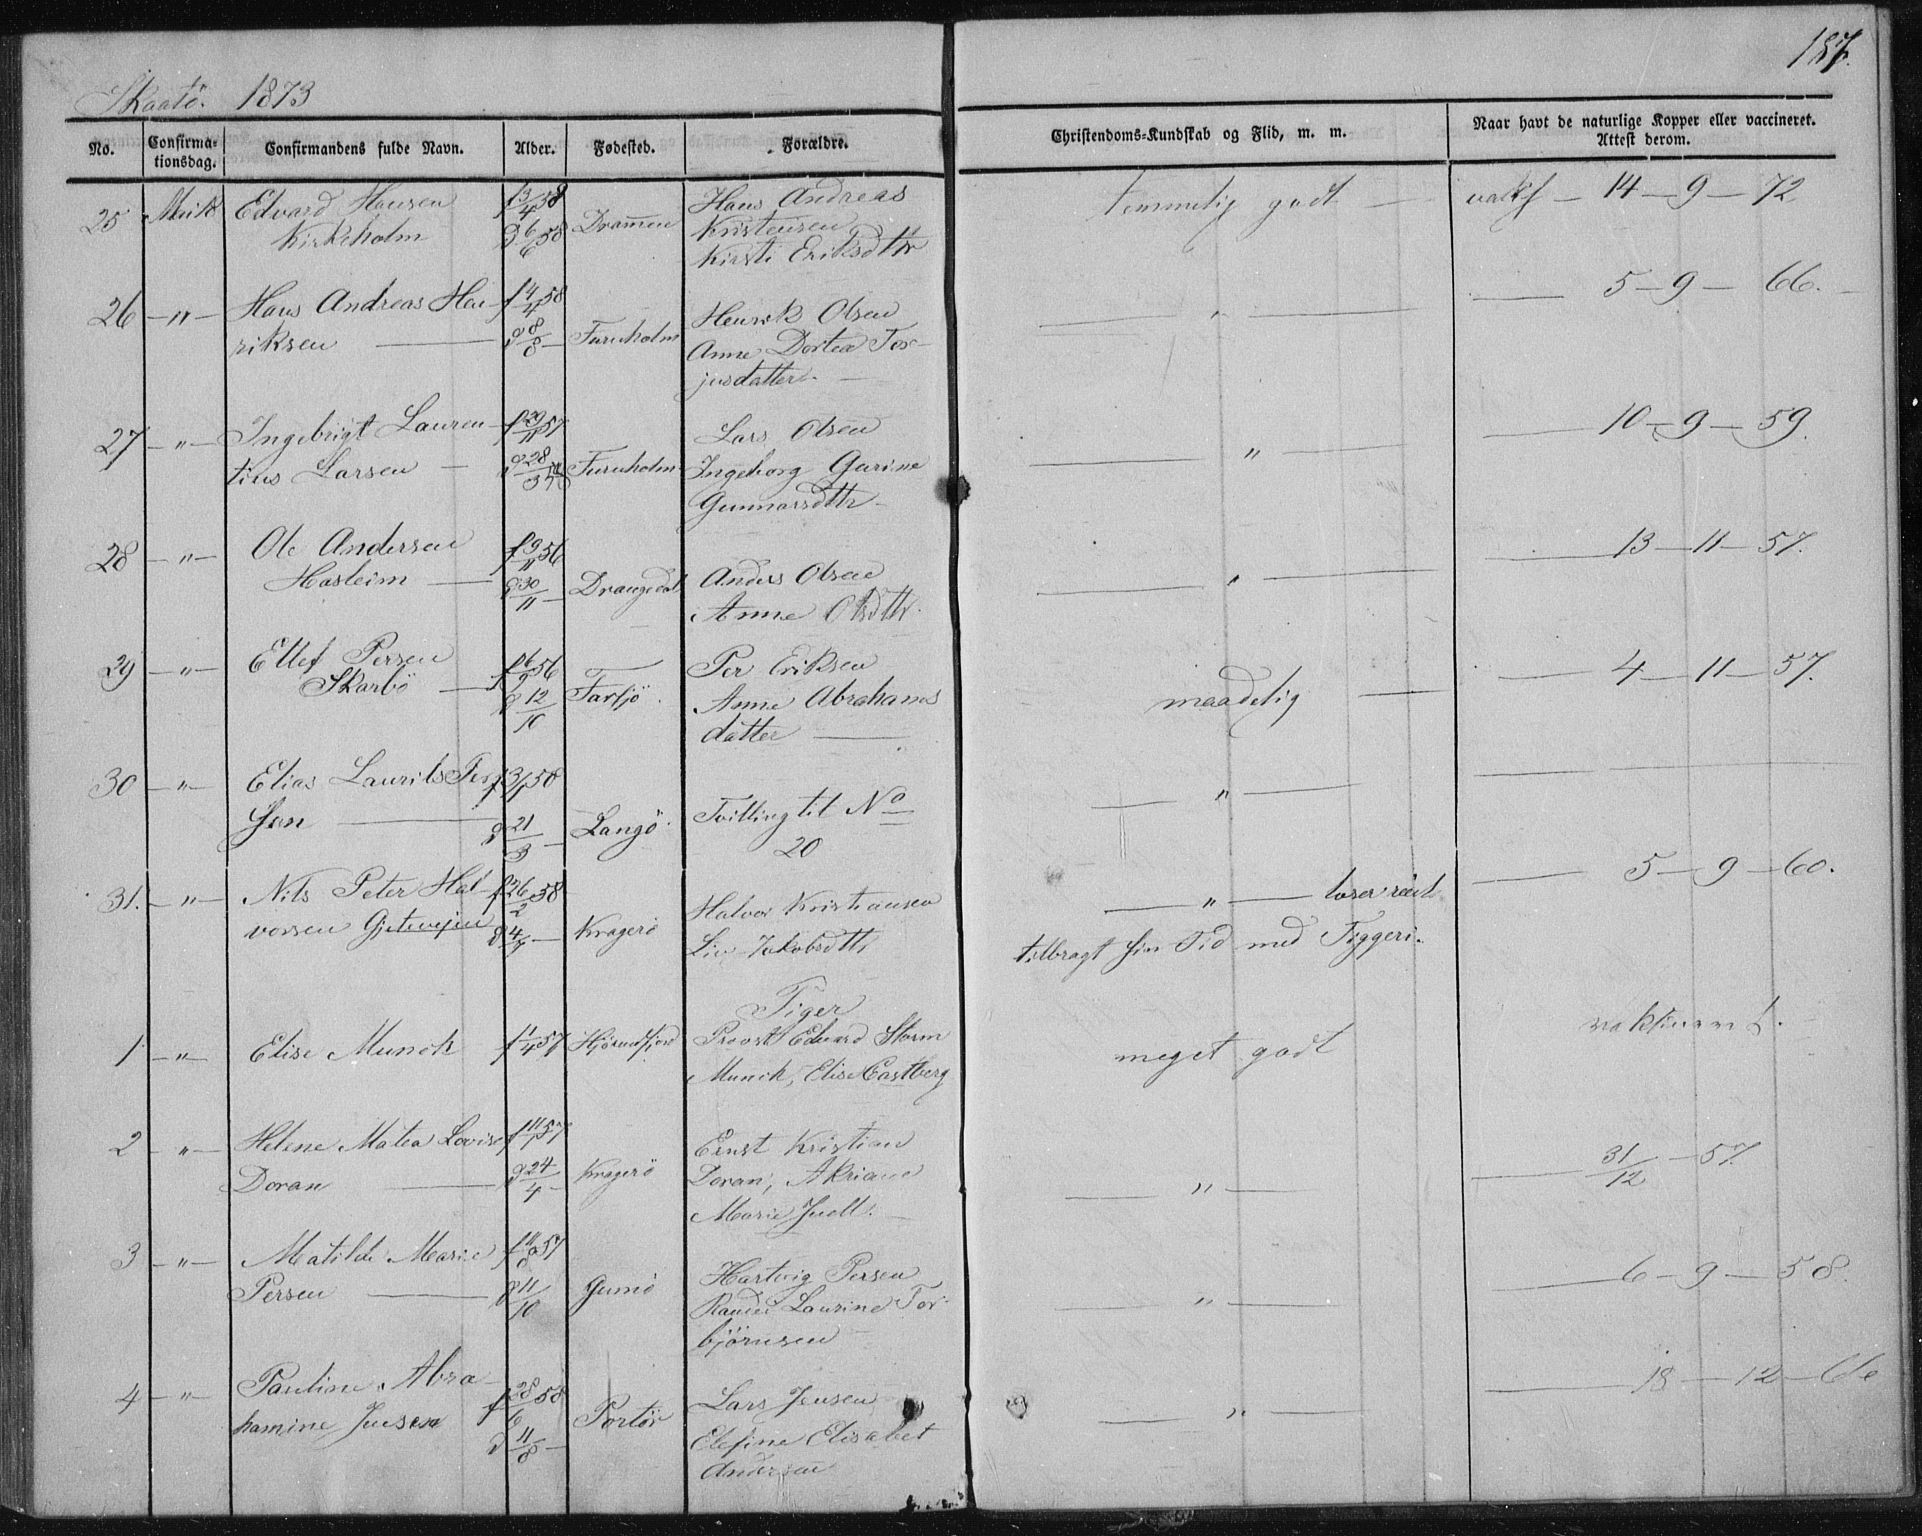 187.
Skaatö. 1873
No. Confirmationsdag. Confirmandens fulde Navn. Alder. Fødested. Forældre. Christendoms-Kundskab og Flid, m. m. Naar havt de naturlige Kopper eller vaccineret. Attest derom.
25 Edvard Hansen f 13/4 58 Hans Andreas temmelig godt — 14—9—72
Kirkeholm d 6/6 58 Drammen Kristensen
Kirsti Eriksdttr
26 —"— Hans Andreas Hen- f 4/4 58 Henrik Olsen —"— — 5—9—66.
riksen — d 8/8 — Furuholm Anne Dortea Tor-
jusdatter. —
27 —"— Ingebrigt Lauren- f 29/11 57 Lars Olsen —"— — 10—9—59.
tius Larsen — d 28/3 Furuholm Ingeborg Gurine
Gunnarsdttr
28 —"— Ole Andersen f 9/11 56 Anders Olsen —"— — 13—11—57.
Hasleim — d 30/11 — Drangedal Anne Olsdttr.
29 —"— Ellef Persen f 16/9 56 Per Eriksen maadelig — — 4—11—57.
Skarbö — d 12/10 Farsjö. Anne Abrahams
datter —
30 —"— Elias Laurits f 3/1 58 Tvilling til No —"— —
sen — d 21/3 — Langö. 20
31. —"— Nils Peter Hal- f 26/2 58 Halvor Kristiansen —"— — 5—9—60.
vorsen d 4/4 — Kragerö Liv Jakobsdttr tilbragt sin Tid med Tiggeri.
Piger
1 —"— Elise Munch f 1/4 57 Hjörundfjord Provst Edvard Storm meget godt vaksineret.
Munch, Elise Castberg
2 —"— Helene Matea Lovise f 11/1 57 Ernst Kristian —"— — 31/12 —57.
Doran — d 24/4 — Kragerö Doran, Adriane
Marie Juell. —
3 —"— Matilde Marie f 11/8 57 Hartvig Persen —"— — 6—9—58.
Persen — d 11/10 Gumö Laurine Tor-
björnsen
4 —"— Pauline Abra- f 28/6 58 Lars Jensen —"— — 18—12—
hamine Jensen d 11/8 — Portör Elefine Elisabet
Andersen